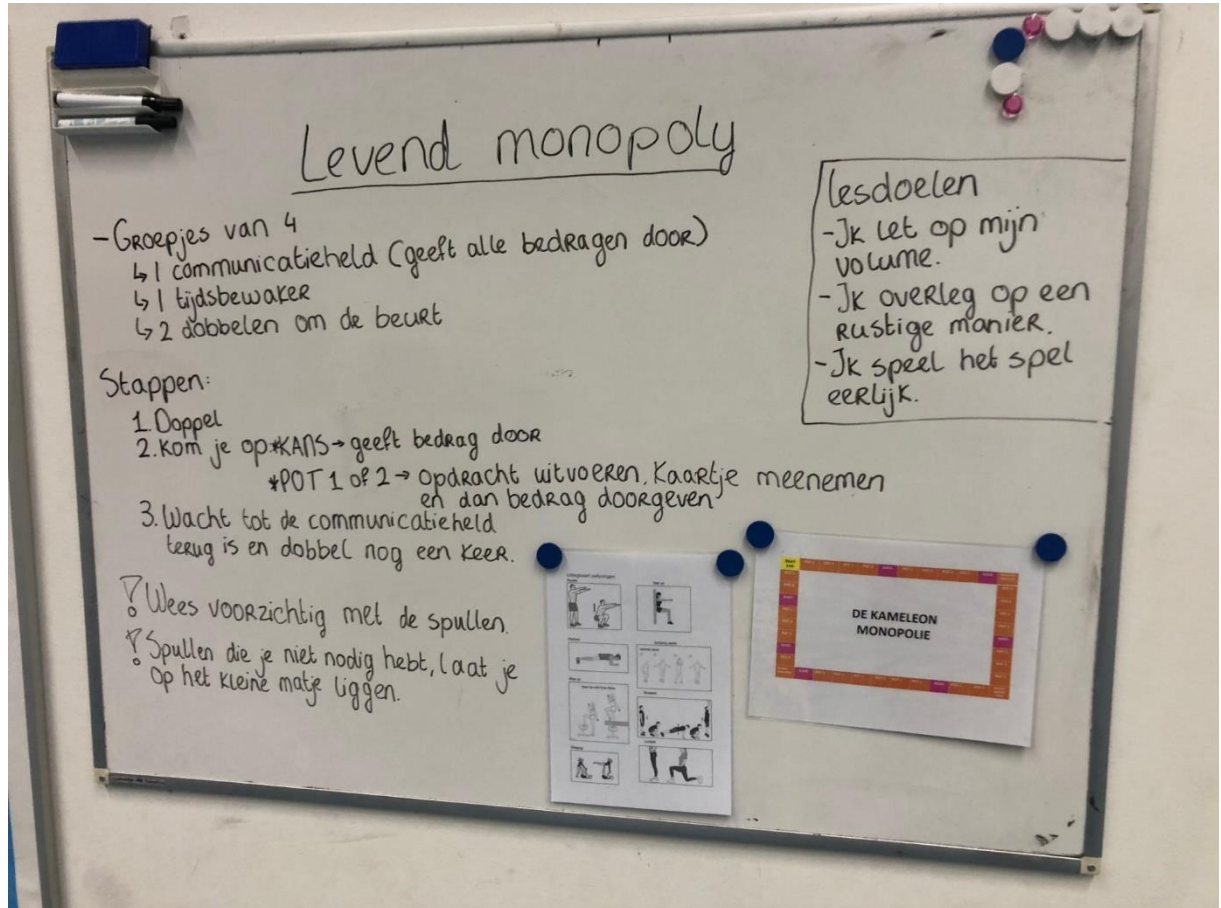 Levend monopoly
- Groepjes van 4
↳ 1 communicatieheld (geeft alle bedragen door)
↳ 1 tijdsbewaker
↳ 2 dobbelen om de beurt
Stappen:
1. Doppel
2. Kom je op *KANS → geeft bedrag door
*POT 1 of 2 → opdracht uitvoeren, kaartje meenemen
en dan bedrag doorgeven
3. Wacht tot de communicatieheld
terug is en dobbel nog een keer.
! Wees voorzichtig met de spullen.
! Spullen die je niet nodig hebt, laat je
op het kleine matje liggen.
lesdoelen
- Ik let op mijn
volume.
- Ik overleg op een
rustige manier.
- Ik speel het spel
eerlijk.
DE KAMELEON
MONOPOLIE